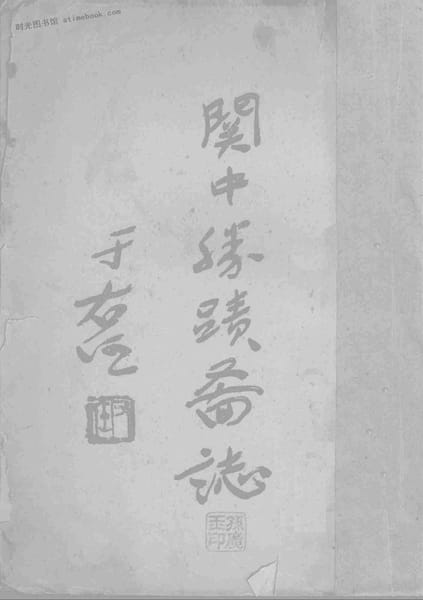 时光图书馆 atimebook.com
関中勝蹟啚誌
于右任